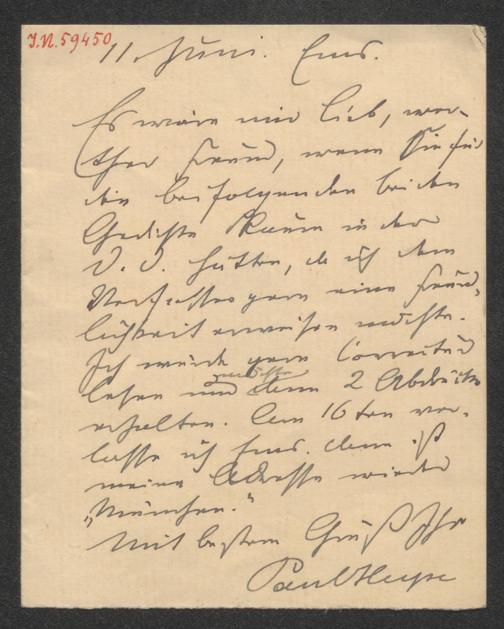 I.N. 59450
11. Juni. Ems.
Es wäre mir lieb, wer-
ther Freund, wenn Sie für
die beifolgenden beiden
Gedichte Raum in der
D. D. hätten, da ich dem
Verfasser gern eine Freund-
lichkeit erweisen möchte.
Ich würde gern Correctur
lesen und dann 2 Abdrücke
erhalten. Am 16ten ver-
lasse ich Ems. dann ist
meine Adresse wieder
„München."
Mit bestem Gruß Ihr
Paul Heyse